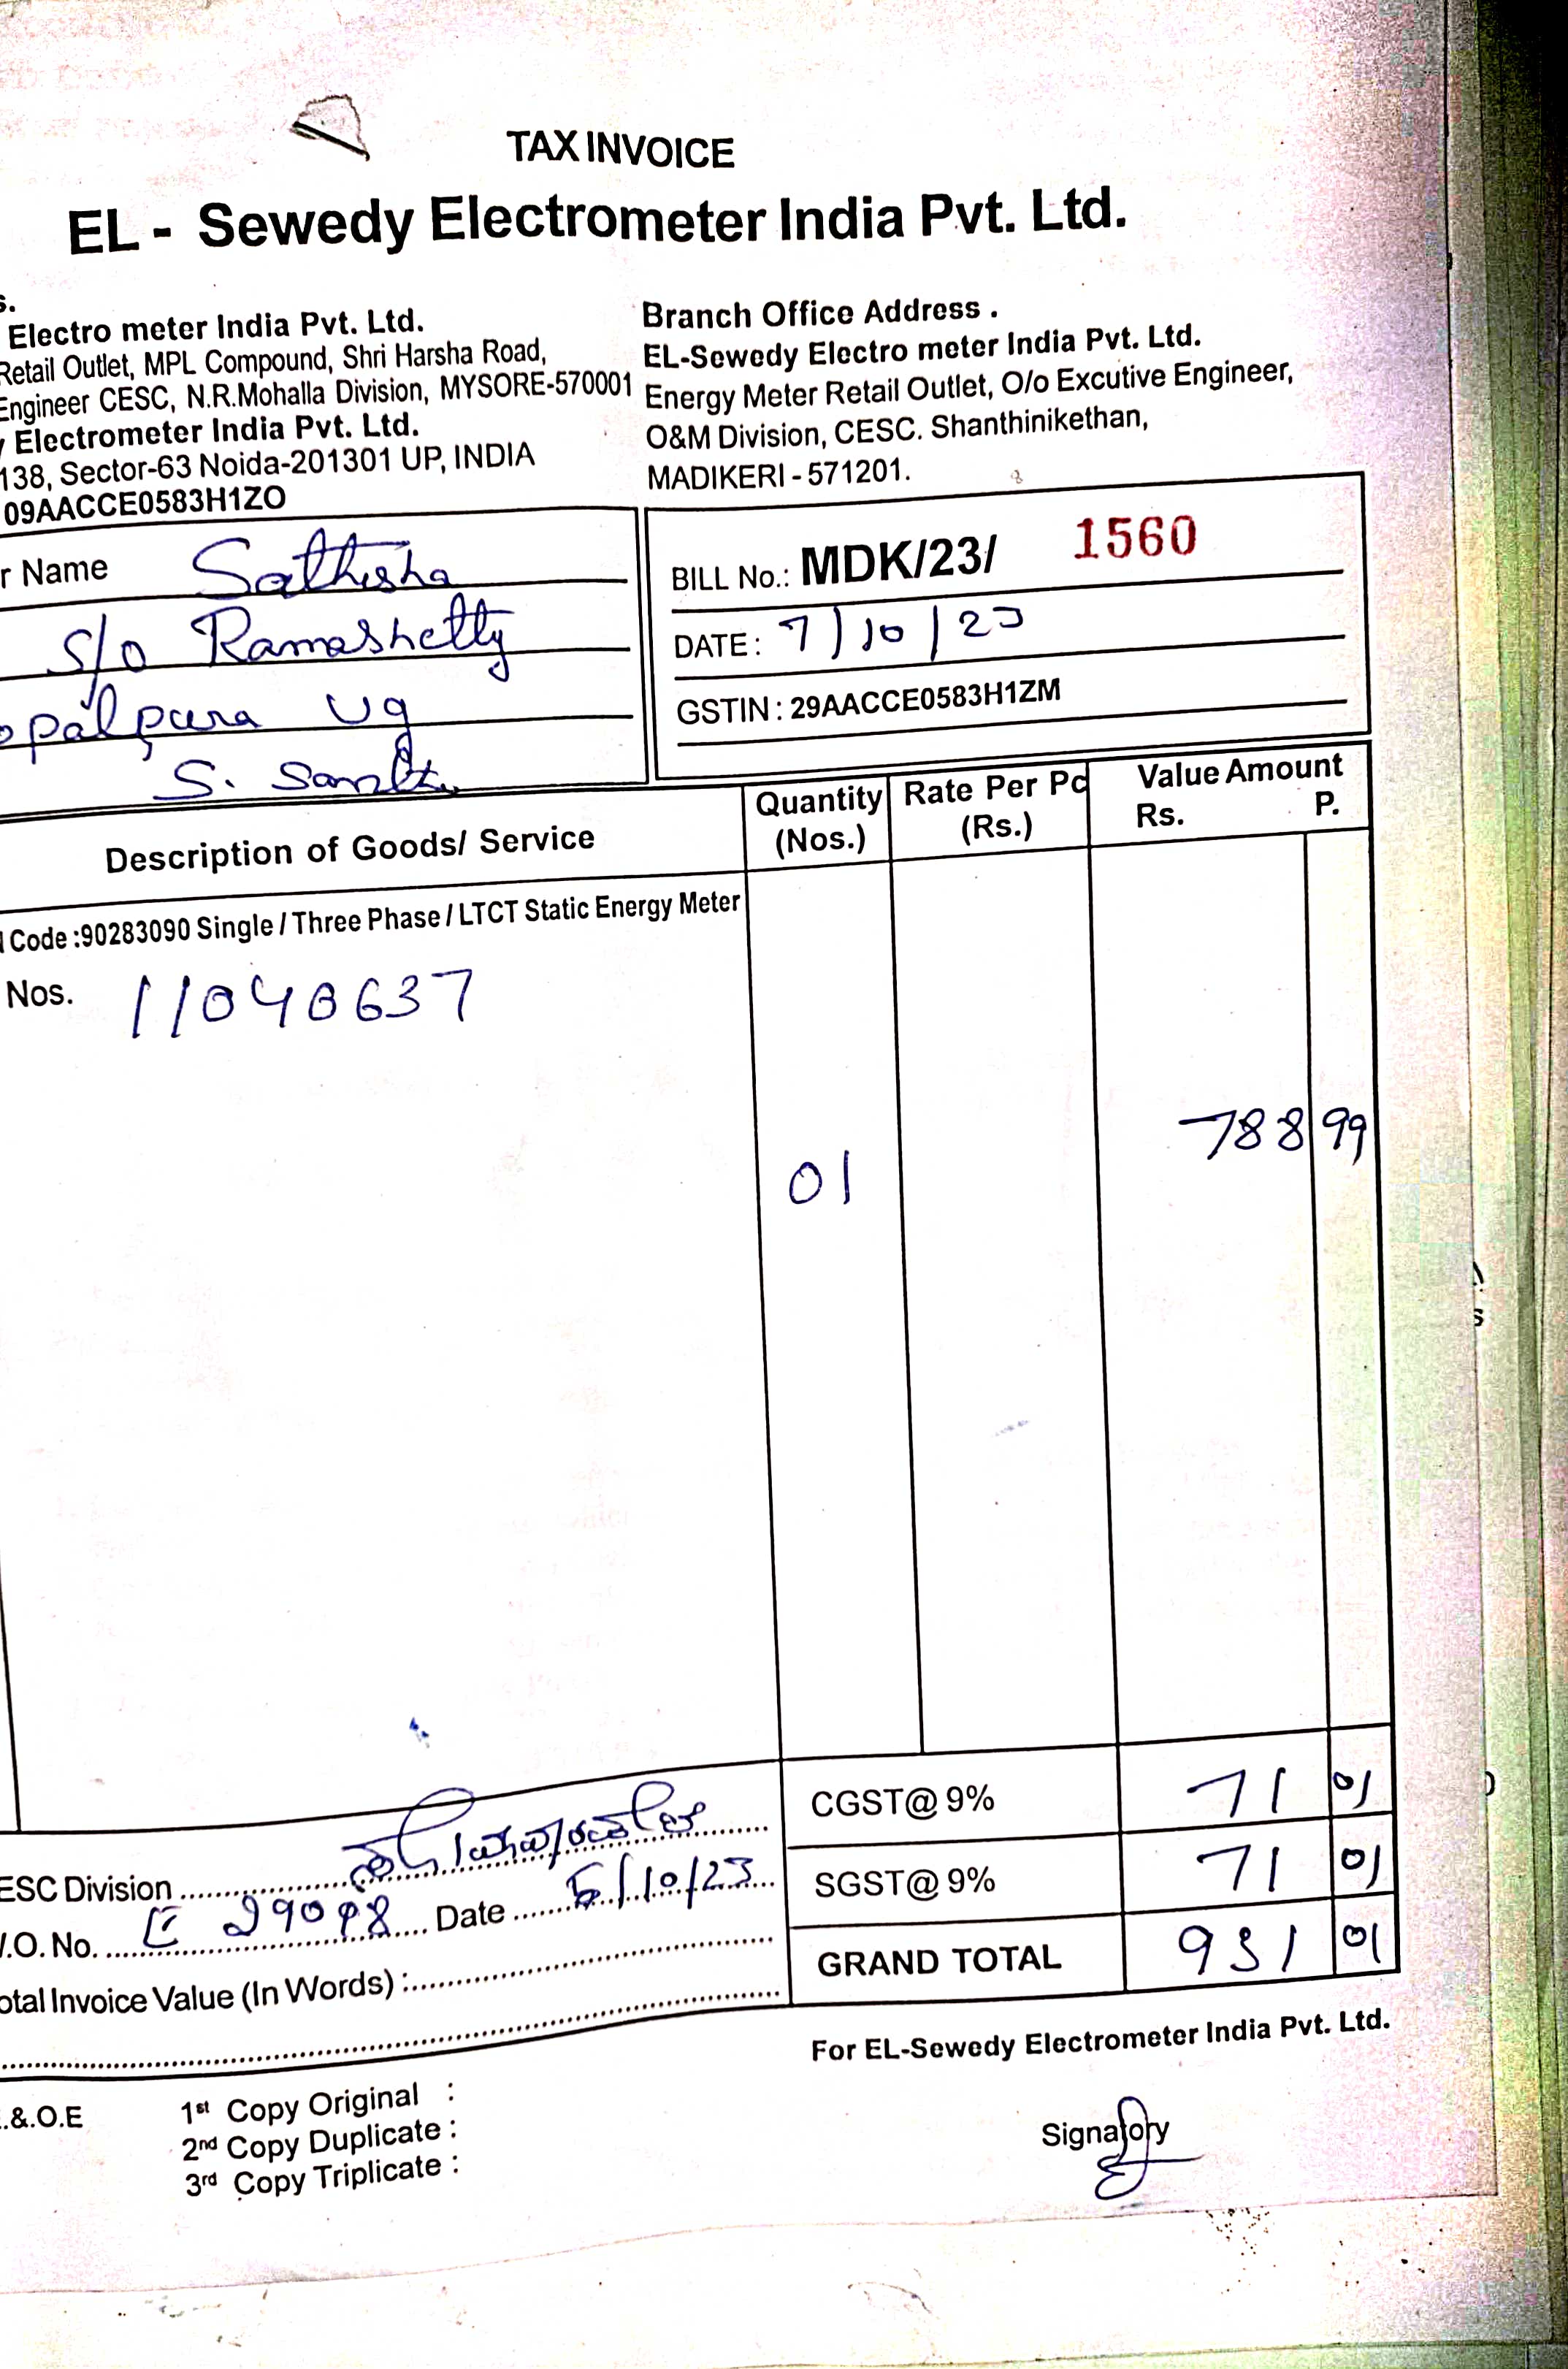 TAX INVOICE
EL - Sewedy Electrometer India Pvt. Ltd.
s.
Electro meter India Pvt. Ltd.
Retail Outlet, MPL Compound, Shri Harsha Road,
Engineer CESC, N.R.Mohalla Division, MYSORE-570001
Electrometer India Pvt. Ltd.
138, Sector-63 Noida-201301 UP, INDIA
09AACCE0583H1ZO
Branch Office Address .
EL-Sewedy Electro meter India Pvt. Ltd.
Energy Meter Retail Outlet, O/o Excutive Engineer,
O&M Division, CESC. Shanthinikethan,
MADIKERI - 571201.
r Name Sathisha
S/o Ramashetty
opalpura Vg
S.
BILL No.: MDK/23/ 1560
DATE : 7/10/23
GSTIN : 29AACCE0583H1ZM
Description of Goods/ Service Quantity (Nos.) Rate Per Pc (Rs.) Value Amount Rs. P.
Code :90283090 Single / Three Phase / LTCT Static Energy Meter
Nos. 11040637
01 788 99
CGST@ 9% 71 01
SGST@ 9% 71 01
GRAND TOTAL 931 01
ESC Division
.O. No. 29098 Date 6/10/23
otal Invoice Value (In Words) :
For EL-Sewedy Electrometer India Pvt. Ltd.
.&.O.E
1st Copy Original :
2nd Copy Duplicate :
3rd Copy Triplicate :
Signatory